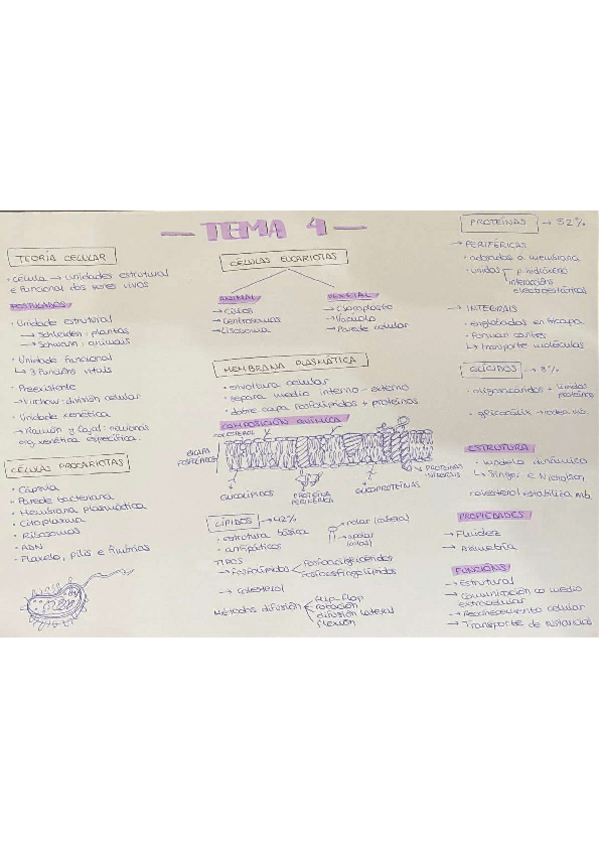 TEMA 4
TEORÍA CELULAR
· célula → unidades estrutural
e funcional dos seres vivos
POSTULADOS
· Unidade estrutural
→ Schleiden: plantas
→ Schwann: animais
· Unidade funcional
↳ 3 funcións vitais
· Preexistente
→ Virchow: división celular
· Unidade xenética
→ Ramón y Cajal: neuronas
org. xenética específica.
CÉLULAS PROCARIOTAS
· Cápsula
· Parede bacteriana
· Membrana plasmática
· Citoplasma
· Ribosomas
· ADN
· Flaxelo, pilis e fimbrias
CÉLULAS EUCARIOTAS
ANIMAL
→ Cilios
→ Centrosomas
→ Lisosoma
VEXETAL
→ Cloroplasto
→ Vacuola
→ Parede celular
MEMBRANA PLASMÁTICA
· envoltura celular
· separa medio interno - externo
· dobre capa fosfolípidos + proteínas
COMPOSICIÓN QUÍMICA
COLESTEROL
BICAPA
FOSFOLÍPIDOS
GLICOLÍPIDOS
PROTEÍNA
PERIFÉRICA
GLICOPROTEÍNAS
PROTEÍNAS
INTEGRAIS
LÍPIDOS → 42%
· estrutura básica
· antipáticos
polar (cabeza)
apolar
(colas)
TIPOS
→ fosfolípidos
fosfoglicéridos
fosfoesfingolípidos
→ colesterol
Métodos difusión
flip-flop
rotación
difusión lateral
flexión
PROTEÍNAS → 52%
→ PERIFÉRICAS
· adosadas á membrana
· unidas
p. hidróxeno
interaccións
electroestáticas
→ INTEGRAIS
· englobadas en bicapa
· forman canles
↳ transporte moléculas
GLÍCIDOS → 8%
· oligosacáridos + lípidos
proteína
· glicocálix → rodea mb.
ESTRUTURA
· modelo dinámico
↳ Singer e Nicholson
colesterol estabiliza mb.
PROPIEDADES
→ Fluidez
→ Asimetría
FUNCIÓNS
→ Estrutural
→ Comunicación co medio
extracelular
→ Recoñecemento celular
→ Transporte de substancias